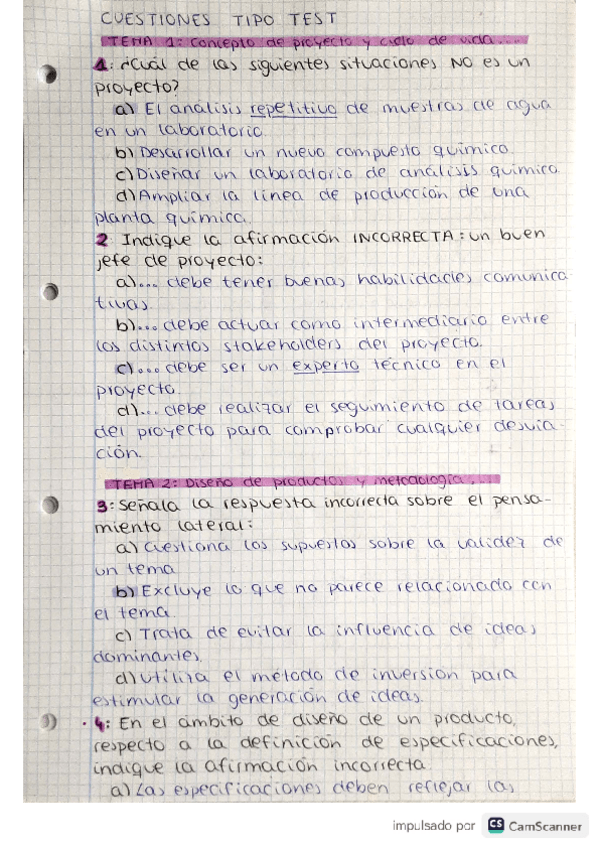 CUESTIONES TIPO TEST
TEMA 1: Concepto de proyecto y ciclo de vida...
1: ¿Cuál de las siguientes situaciones NO es un
proyecto?
a) El analisis repetitivo de muestras de agua
en un laboratorio.
b) Desarrollar un nuevo compuesto químico.
c) Diseñar un laboratorio de análisis químico.
d) Ampliar la línea de producción de una
planta química.
2. Indique la afirmación INCORRECTA: un buen
jefe de proyecto:
a)... debe tener buenas habilidades comunica
tivas.
b)... debe actuar como intermediario entre
los distintos stakeholders del proyecto.
c)... debe ser un experto técnico en el
proyecto.
d)... debe realizar el seguimiento de tareas
del proyecto para comprobar cualquier desvia-
ción.
TEMA 2: Diseño de productos y metodología....
3: Señala la respuesta incorrecta sobre el pensa-
miento lateral:
a) Cuestiona los supuestos sobre la validez de
un tema
b) Excluye lo que no parece relacionado con
el tema.
c) Trata de evitar la influencia de ideas
dominantes.
d) Utiliza el método de inversión para
estimular la generación de ideas.
4: En el ámbito de diseño de un producto,
respecto a la definición de especificaciones,
indique la afirmación incorrecta
a) Las especificaciones deben reflejar las
impulsado por CS CamScanner